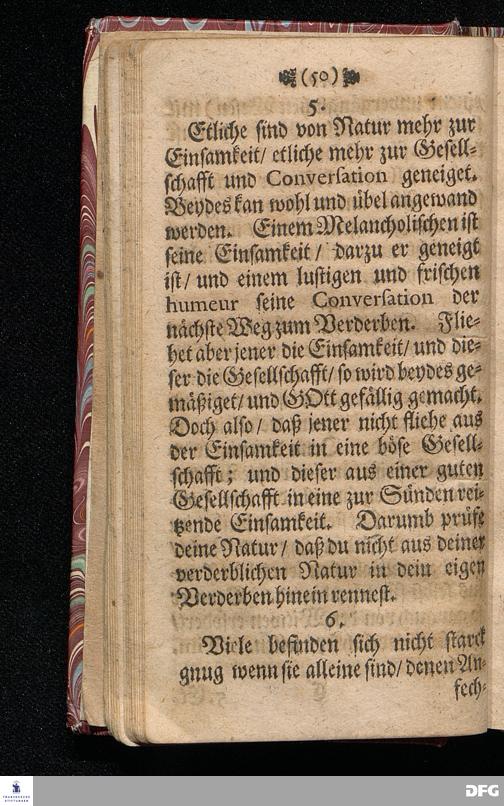 (50)
5.
Etliche sind von Natur mehr zur
Einsamkeit/ etliche mehr zur Gesell-
schafft und Conversation geneiget.
Beydes kan wohl und übel angewand
werden. Einem Melancholischen ist
seine Einsamkeit/ darzu er geneigt
ist/ und einem lustigen und frischen
humeur seine Conversation der
nächste Weg zum Verderben. Flie-
het aber jener die Einsamkeit/ und die-
ser die Gesellschafft/ so wird beydes ge-
mäßiget/ und GOtt gefällig gemacht.
Doch also/ daß jener nicht fliehe aus
der Einsamkeit in eine böse Gesell-
schafft; und dieser aus einer guten
Gesellschafft in eine zur Sünden rei-
tzende Einsamkeit. Darumb prüfe
deine Natur/ daß du nicht aus deiner
verderblichen Natur in dein eigen
Verderben hinein rennest.
6.
Viele befinden sich nicht starck
gnug wenn sie alleine sind/ denen An-
fech-
FRANCKESCHE STIFTUNGEN
DFG